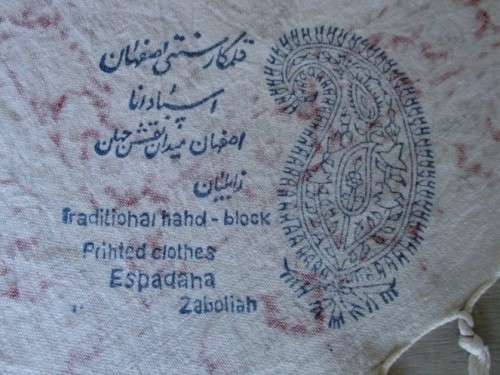 قلمکار سنتی اصفهان
اسپادانا
اصفهان میدان نقش جهان
زابلیان
Traditional hand - block
Printed clothes
Espadana
Zabolian